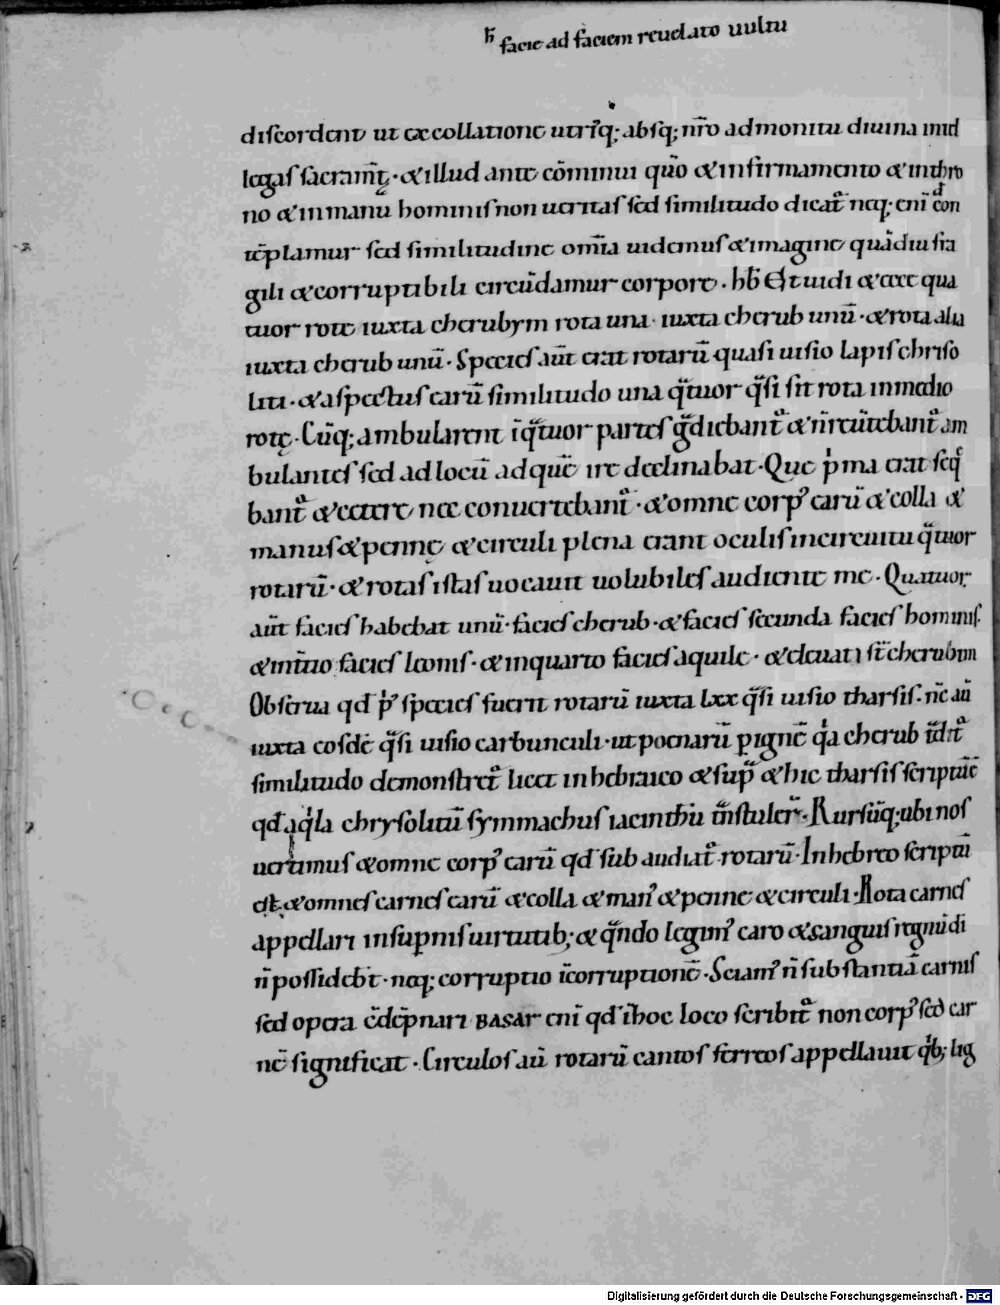 h̅ facie ad faciem reuelato uultu
discordent ut ex collatione utriq; absq; nr̅o admonitu diuina intel
legas sacram̅t̨ · & illud ante co̅minui quo̅ & in firmamento & in thro
no & in manu hominis non ueritas sed similitudo dicat̅ neq; eni̅ con
te̅plamur sed similitudine om̅ia uidemus & imagine qua̅diu fra
gili & corruptibili circu̅damur corpore · hb̅ Et uidi & ecce qua
tuor rote iuxta cherubym rota una · iuxta cherub unu̅ · & rota alia
iuxta cherub unu̅ · Species aut̅ erat rotaru̅ quasi uisio lapis chriso
liti · & aspectus earu̅ similitudo una q̅tuor q̅si sit rota in medio
rotę · Cu̅q; ambularent i̅ q̅tuor partes g̅diebant̅ & n̅ reu̅tebant̅ am
bulantes sed ad locu̅ ad que̅ ire declinabat · Que p̅ma erat seq̅
bant̅ & cetere nec conuertebant̅ · & omne corp᾽ earu̅ & colla &
manus & pennę & circuli plena erant oculis in circuitu q̅tuor
rotaru̅ · & rotas istas uocauit uolubiles audiente me · Quatuor
aut̅ facies habebat unu̅ · facies cherub · & facies secunda facies hominis ·
& in t̅tio facies leonis · & in quarto facies aquile · & eleuati st̅ cherubim
Obserua qd̅ p᾽ species fuerit rotaru̅ iuxta lxx q̅si uisio tharsis · n̅c au̅
iuxta eosde̅ q̅si uisio carbunculi · ut poenaru̅ p igne̅ q̅a cherub
similitudo demonstret̅ licet in hebraico & sup̅ & hic tharsis scriptu̅
qd̅ aq̅la chrysolitu̅ symmachus iacinthu̅ t̅nstuler̅ · Rursu̅q; ubi nos
uertimus & omne corp᾽ earu̅ qd̅ sub audiat̅ rotaru̅ · In hebreo scriptu̅
e̅ & omnes carnes earu̅ & colla & man᾽ & penne & circuli · Nota carnes
appellari in sup̅nis uirtutib; & q̅ndo legim᾽ caro & sanguis regnu̅ di̅
n̅ possideb̅t · neq; corruptio i̅corruptione̅ · Sciam᾽ n̅ substantia̅ carnis
sed opera co̅de̅pnari BASAR eni̅ qd̅ i̅ hoc loco scribit̅ non corp᾽ sed car
ne̅ significat · Circulos au̅ rotaru̅ cantos ferreos appellauit q̅b; lig
Digitalisierung gefördert durch die Deutsche Forschungsgemeinschaft - DFG